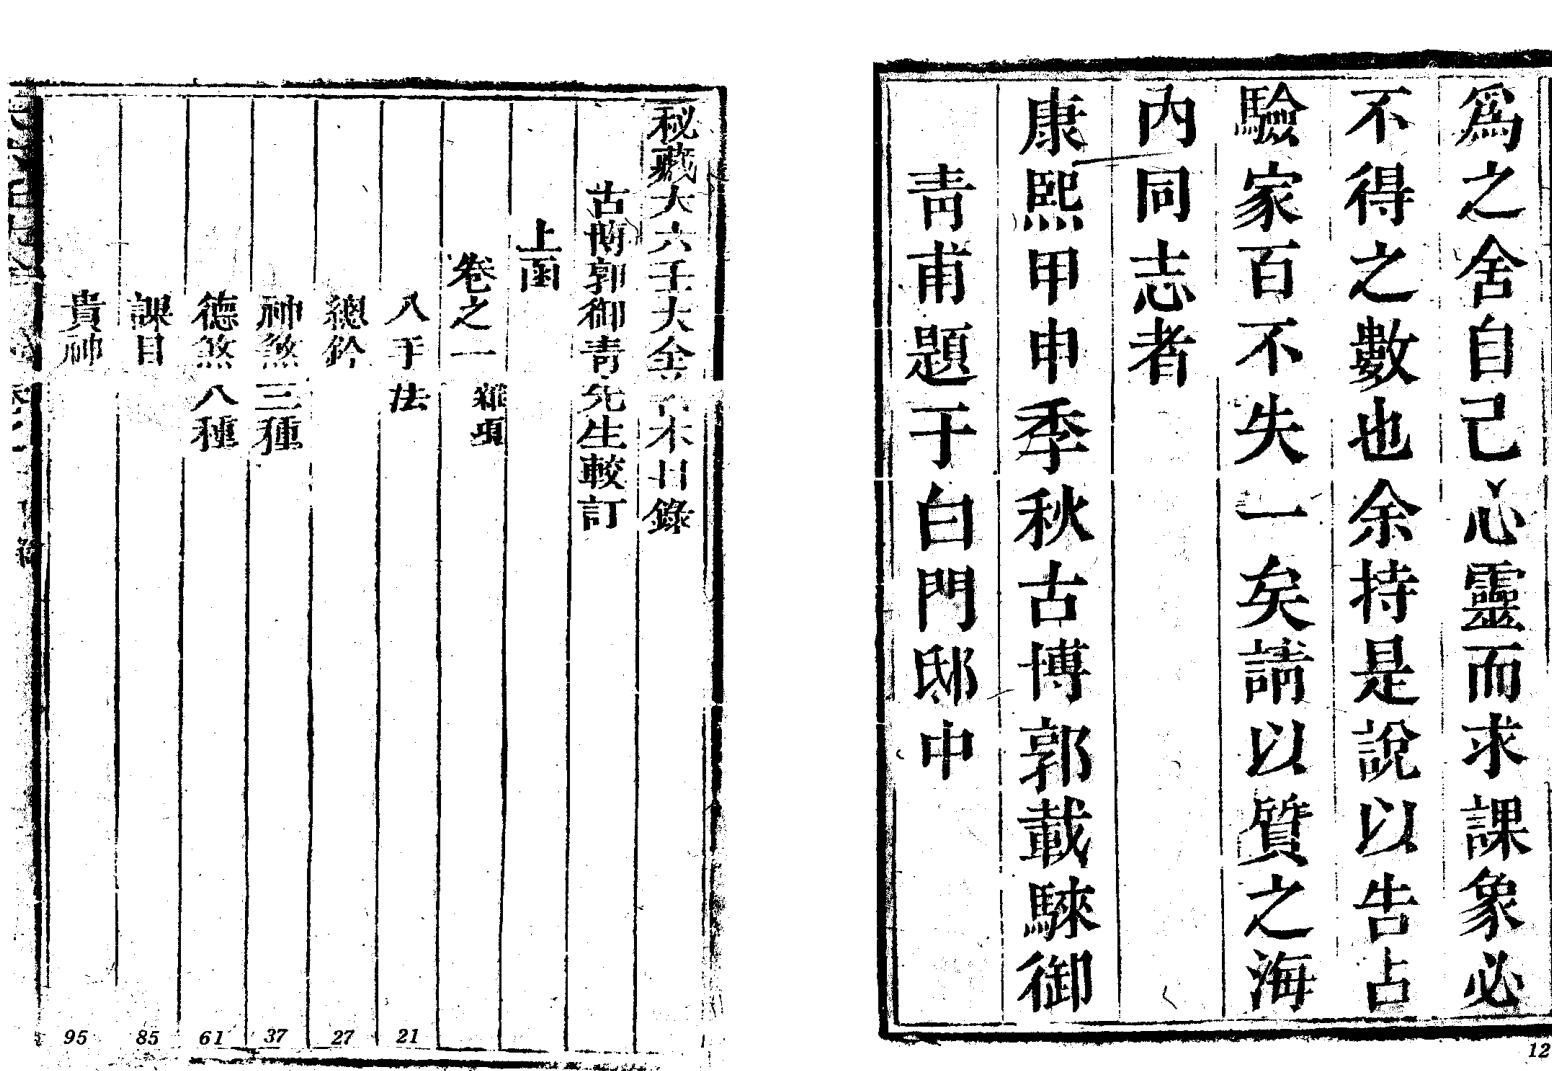 爲之舍自己心靈而求課象必
不得之數也余持是說以告占
驗家百不失一矣請以質之海
內同志者
康熙甲申季秋古博郭載騋御
靑甫題于白門邸中
12
秘藏大六壬大全 本目錄
古博郭御靑先生較訂
上函
卷之一 雜項
八干法 21
總鈐 27
神煞三種 37
德煞八種 61
課目 85
貴神 95